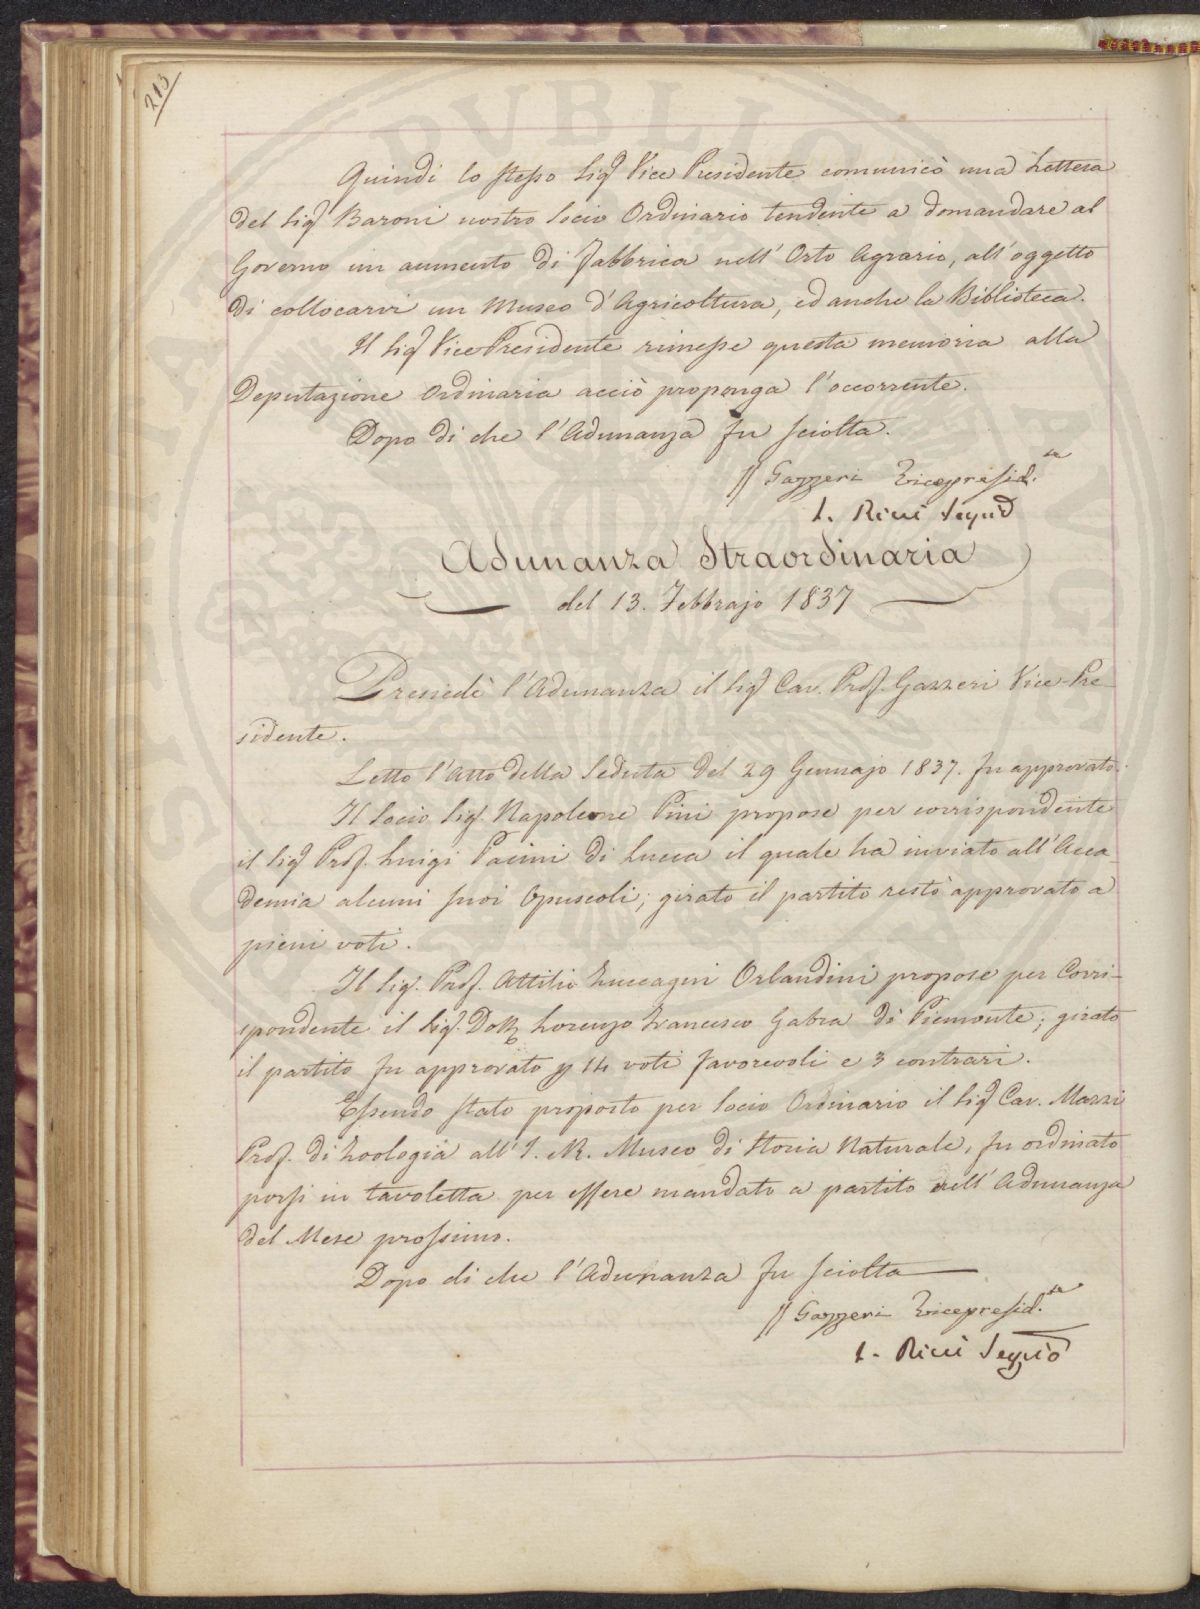 213
Quindi lo stesso Sig.r Vice Presidente comunicò una Lettera
del Sig.r Baroni nostro Socio Ordinario tendente a domandare al
Governo un aumento di fabbrica nell' Orto Agrario, all' oggetto
di collocarvi un Museo d' Agricoltura, ed anche la Biblioteca.
Il Sig.r Vice Presidente rimesse questa memoria alla
Deputazione Ordinaria acciò proponga l' occorrente.
Dopo di che l' Adunanza fu sciolta.
Gazzeri Vicepresid.te
L. Ricci Seg.rio
Adunanza Straordinaria
del 13. Febbrajo 1837
Presiedè l' Adunanza il Sig.r Cav. Prof. Gazzeri Vice-Pre-
sidente.
Letto l' Atto della Seduta del 29 Gennajo 1837. fu approvato.
Il Socio Sig.r Napoleone Pini propose per corrispondente
il Sig.r Prof. Luigi Pacini di Lucca il quale ha inviato all' Acca-
demia alcuni suoi Opuscoli; girato il partito restò approvato a
pieni voti.
Il Sig.r Prof. Attilio Zuccagni Orlandini propose per Corri-
spondente il Sig.r Dott. Lorenzo Francesco Gabra di Piemonte; girato
il partito fu approvato p 14 voti favorevoli e 3 contrari.
Essendo stato proposto per Socio Ordinario il Sig.r Cav. Mazzi
Prof. di Zoologia all' I. R. Museo di Storia Naturale, fu ordinato
porsi in tavoletta per essere mandato a partito nell' Adunanza
del Mese prossimo.
Dopo di che l' Adunanza fu sciolta
Gazzeri Vicepresid.te
L. Ricci Seg.rio